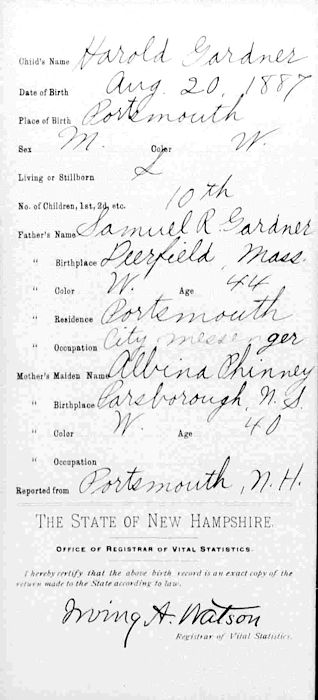 Child's Name Harold Gardner
Date of Birth Aug. 20, 1887
Place of Birth Portsmouth
Sex M. Color W.
Living or Stillborn L
No. of Children, 1st, 2d, etc. 10th
Father's Name Samuel R Gardner
" Birthplace Deerfield, Mass.
" Color W. Age 44
" Residence Portsmouth
" Occupation City messenger
Mother's Maiden Name Albina Phinney
" Birthplace Parsborough, N. S.
" Color W. Age 40
" Occupation
Reported from Portsmouth, N. H.
THE STATE OF NEW HAMPSHIRE.
OFFICE OF REGISTRAR OF VITAL STATISTICS.
I hereby certify that the above birth record is an exact copy of the
return made to the State according to law.
Irving A. Watson
Registrar of Vital Statistics.